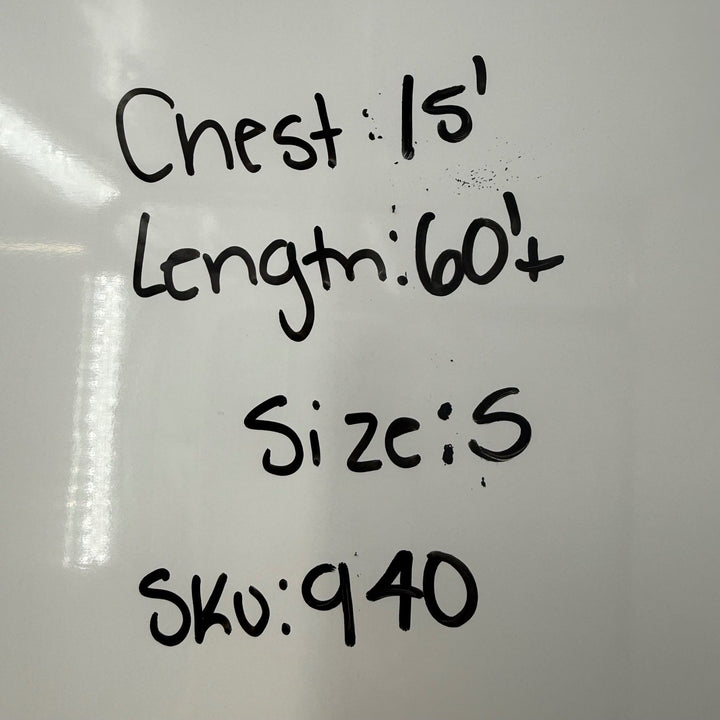 Chest: 15'
Length: 60'+
Size: S
SKU: 940